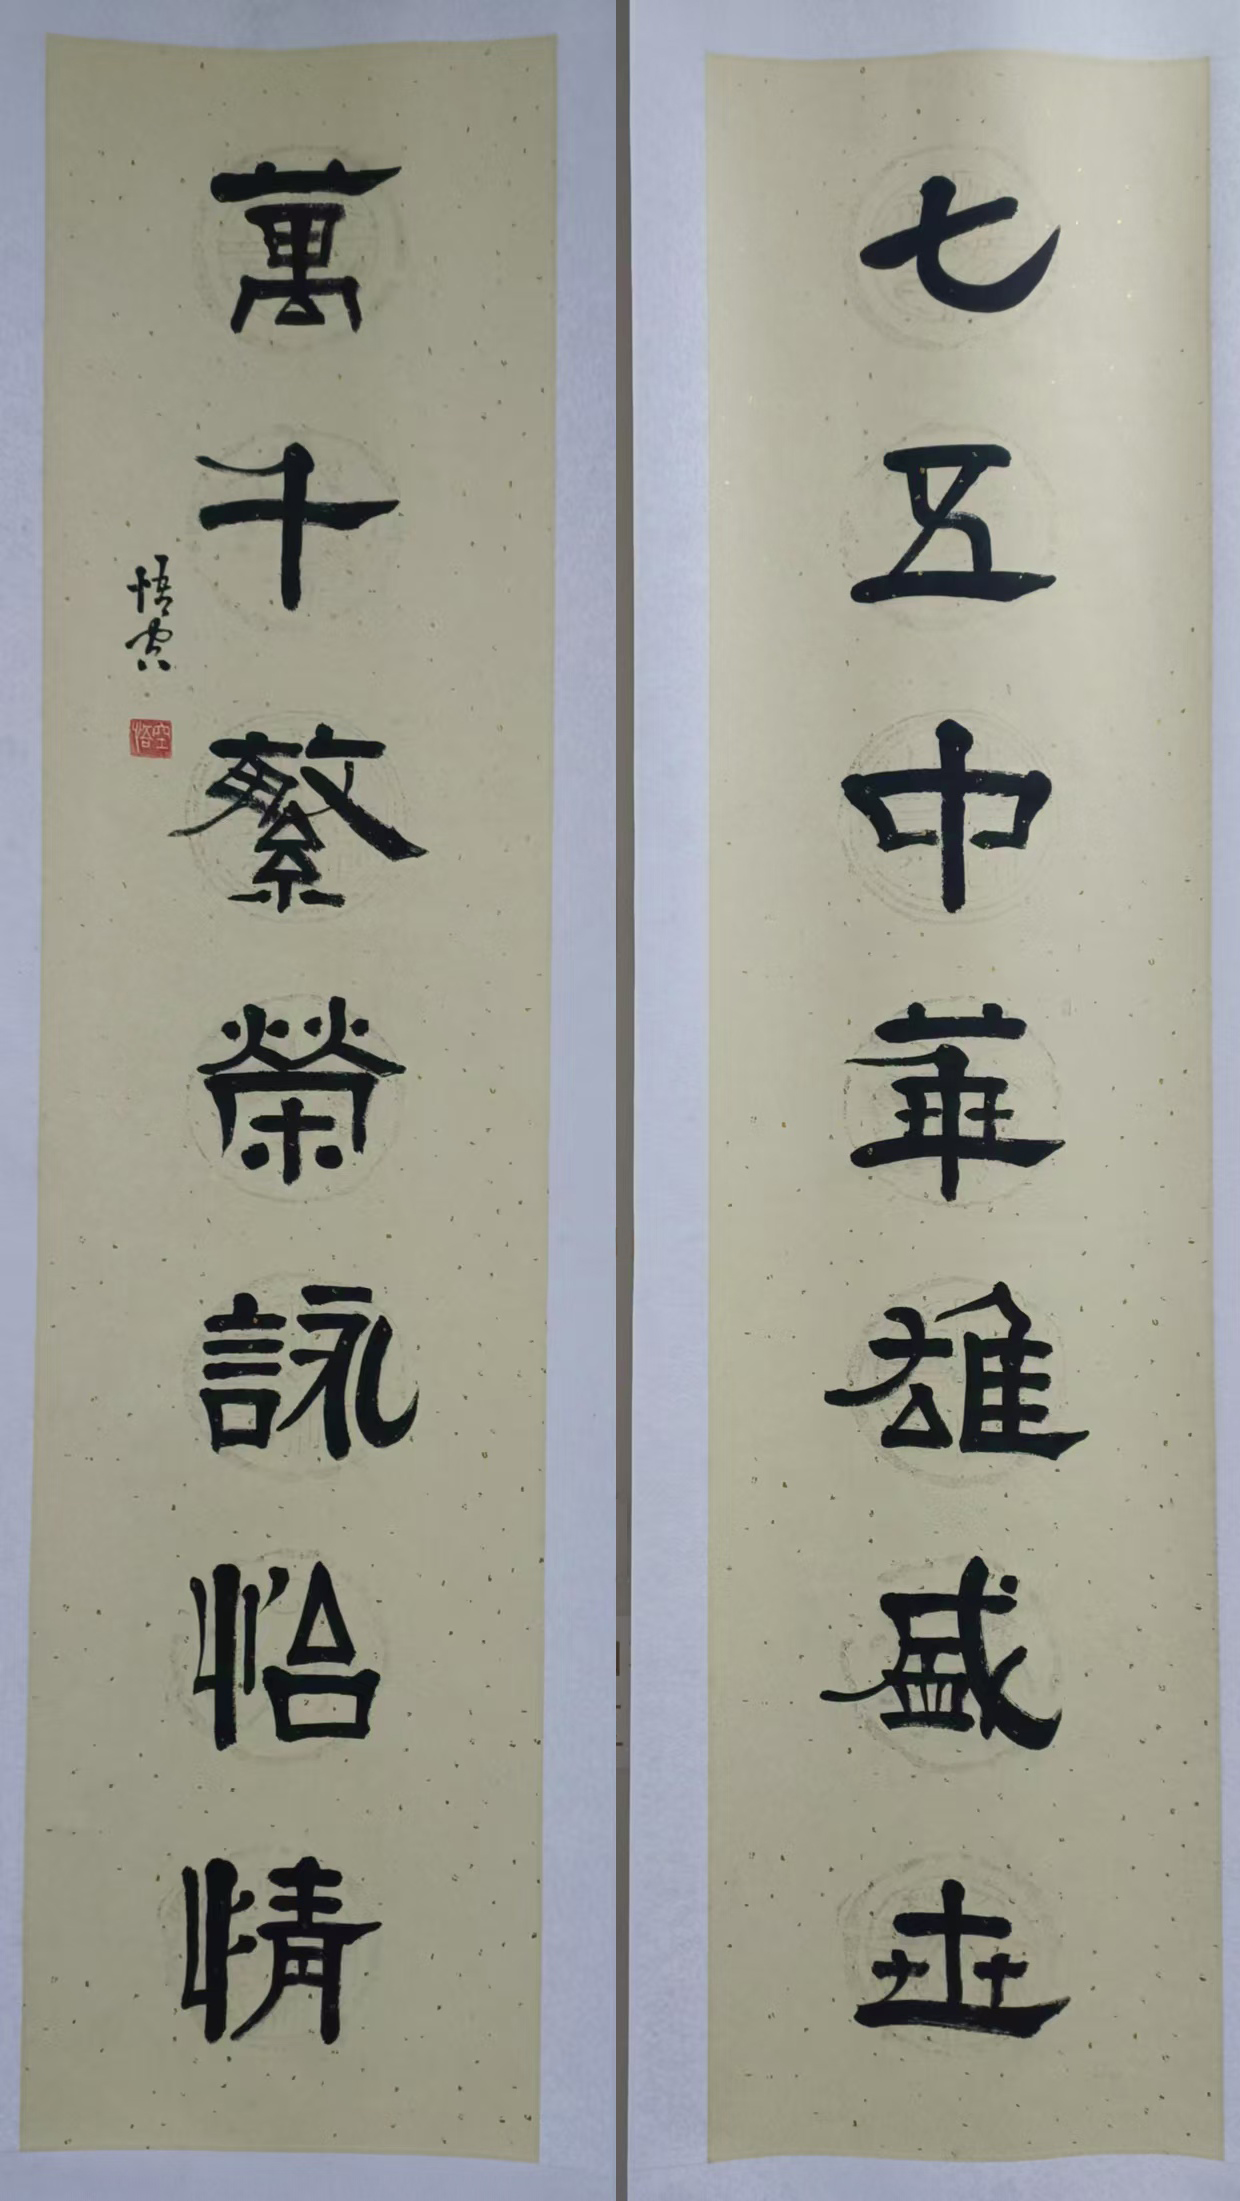 七五中華雄盛世
萬千繁榮詠怡情
悟空
悟空